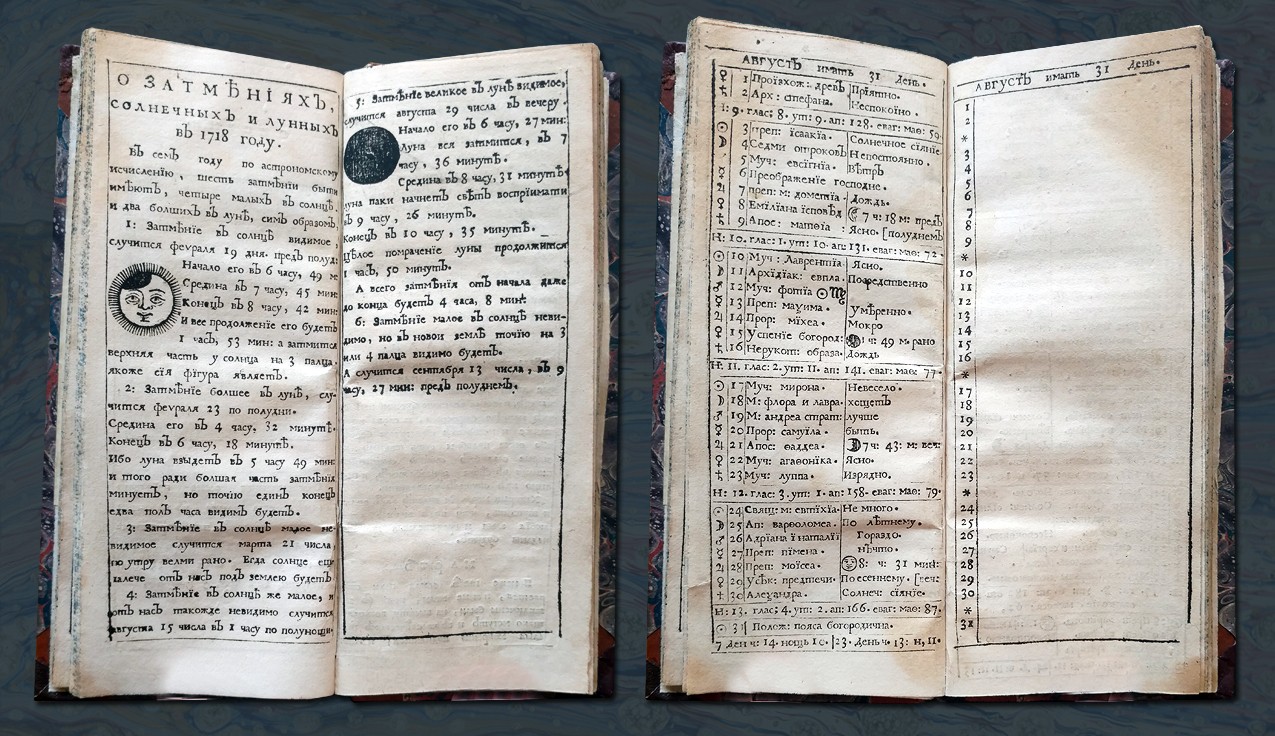 О ЗАТМѢНІЯХЪ,
СОЛНЕЧНЫХЪ И ЛУННЫХЪ
ВЪ 1718 ГОДУ.
ВЪ семЪ году по астрономскому
исчисленію, шесть затмѣній быти
имѣютЪ, четыре малыхЪ вЪ солнцѣ,
и два болшихЪ вЪ лунѣ, симЪ образомЪ
1: Затмѣнїе вЪ солнцѣ видимое,
случится феѵраля 19 дня. предЪ полуд:
Начало его вЪ 6 часу, 49 м
Средина вЪ 7 часу, 45 мин:
КонецЪ вЪ 8 часу, 42 мин:
И все продолженїе его будетЪ
1 часЪ, 53 мин: а затмится
верхняя часть у солнца на 3 палца.
якоже сїя фїгура являетЪ.
2: Затмѣнїе болшее вЪ лунѣ, слу-
чится феѵраля 23 по полудни.
Средина его вЪ 4 часу, 32 минутѣ.
КонецЪ вЪ 6 часу, 18 минутѣ.
Ибо луна взыдетЪ вЪ 5 часу 49 мин:
и того ради болшая часть затмѣнїя
минуетЪ, но точїю единЪ конецЪ
едва полЪ часа видимЪ будетЪ.
3: Затмѣнїе вЪ солнцѣ малое не-
видимое случится марта 21 числа,
по утру велми рано. Егда солнце еще
далече отЪ насЪ подЪ землею будетЪ
4: Затмѣнїе вЪ солнцѣ же малое, и
отЪ насЪ такожде невидимо случится
августа 15 числа вЪ 1 часу по полунощи.
5: Затмѣнїе великое вЪ лунѣ видимое,
случится августа 29 числа вЪ вечеру.
Начало его вЪ 6 часу, 27 мин:
Луна вся затмится, вЪ 7
часу, 36 минутѣ.
Средина вЪ 8 часу, 31 минутѣ
луна паки начнетЪ свѣтЪ воспрїимати
вЪ 9 часу, 26 минутѣ.
КонецЪ вЪ 10 часу, 35 минутѣ.
Цѣлое помраченїе луны продолжится
1 часЪ, 50 минутЪ.
А всего затмѣнїя отЪ начала даже
до конца будетЪ 4 часа, 8 мин:
6: Затмѣнїе малое вЪ солнцѣ неви-
димо, но вЪ новои землѣ точїю на 3
или 4 палца видимо будетЪ.
А случится сентября 13 числа, вЪ 9
часу, 27 мин: предЪ полуднемЪ.
АВГУСТЪ имать 31 день.
♀ 1 Проїзхож: древЪ Прїятно.
♄ 2 Арх: стефана. Неспокоїно.
н: 9. глас: 8. ут: 9. ап: 128. еваг: маѳ: 59.
☉ 3 преп: їсаакїа. Солнечное сїянїе
☽ 4 Седми отроковЪ Непостоянно.
♂ 5 Муч: евсїгнїа. ВѣтрЪ
☿ 6 Преображенїе господне.
♃ 7 преп: м: дометїа. Дождь.
♀ 8 Емїлїана їсповѣд ☾ 7 ч: 18 м: предЪ
♄ 9 Апос: матѳїа Ясно. [полуднемЪ
Н: 10. глас: 1. ут: 10. ап: 131. еваг: маѳ: 72.
☉ 10 Муч: Лаврентїа Ясно.
☽ 11 Архїдїак: евпла. Посредственно
♂ 12 Муч: фотїа ☉ ♍
☿ 13 Преп: маѯима. Умѣренно.
♃ 14 Прор: мїхеа. Мокро
♀ 15 Успенїе богород: 1 ч: 49 м: рано
♄ 16 Нерукот: образа. Дождь
Н: 11. глас: 2. ут: 11. ап: 141. еваг: маѳ: 77.
☉ 17 Муч: мирона. Невесело.
☽ 18 М: флора и лавра. хощетЪ
♂ 19 М: андреа страт: лучше
☿ 20 Прор: самуїла. быть.
♃ 21 Апос: ѳаддеа. ☽ 7 ч: 43: м: веч:
♀ 22 Муч: агаѳонїка. Ясно.
♄ 23 Муч: луппа. Изрядно.
Н: 12. глас: 3. ут: 1. ап: 158. еваг: маѳ: 79.
☉ 24 Свящ: м: евтїхїа. Не много.
☽ 25 Ап: варѳоломеа. По лѣтнему.
♂ 26 Адрїана ї наталїї Гораздо.
☿ 27 Преп: пїмена. нѣчто.
♃ 28 Преп: моїсеа. 8: ч: 31 мин:
♀ 29 Усѣк: предтечи. По осеннему. [веч:
♄ 30 Алеѯандра. Солнеч: сїянїе.
Н: 13. глас: 4. ут: 2. ап: 166. еваг: маѳ: 87.
☉ 31 Полож: пояса богородична.
7 ден ч: 14. нощь 10. 23. День ч. 13: н, 11.
АВГУСТЪ имать 31 день.
1
2
*
3
4
5
6
7
8
9
*
10
11
12
13
14
15
16
*
17
18
19
20
21
22
23
*
24
25
26
27
28
29
30
*
31